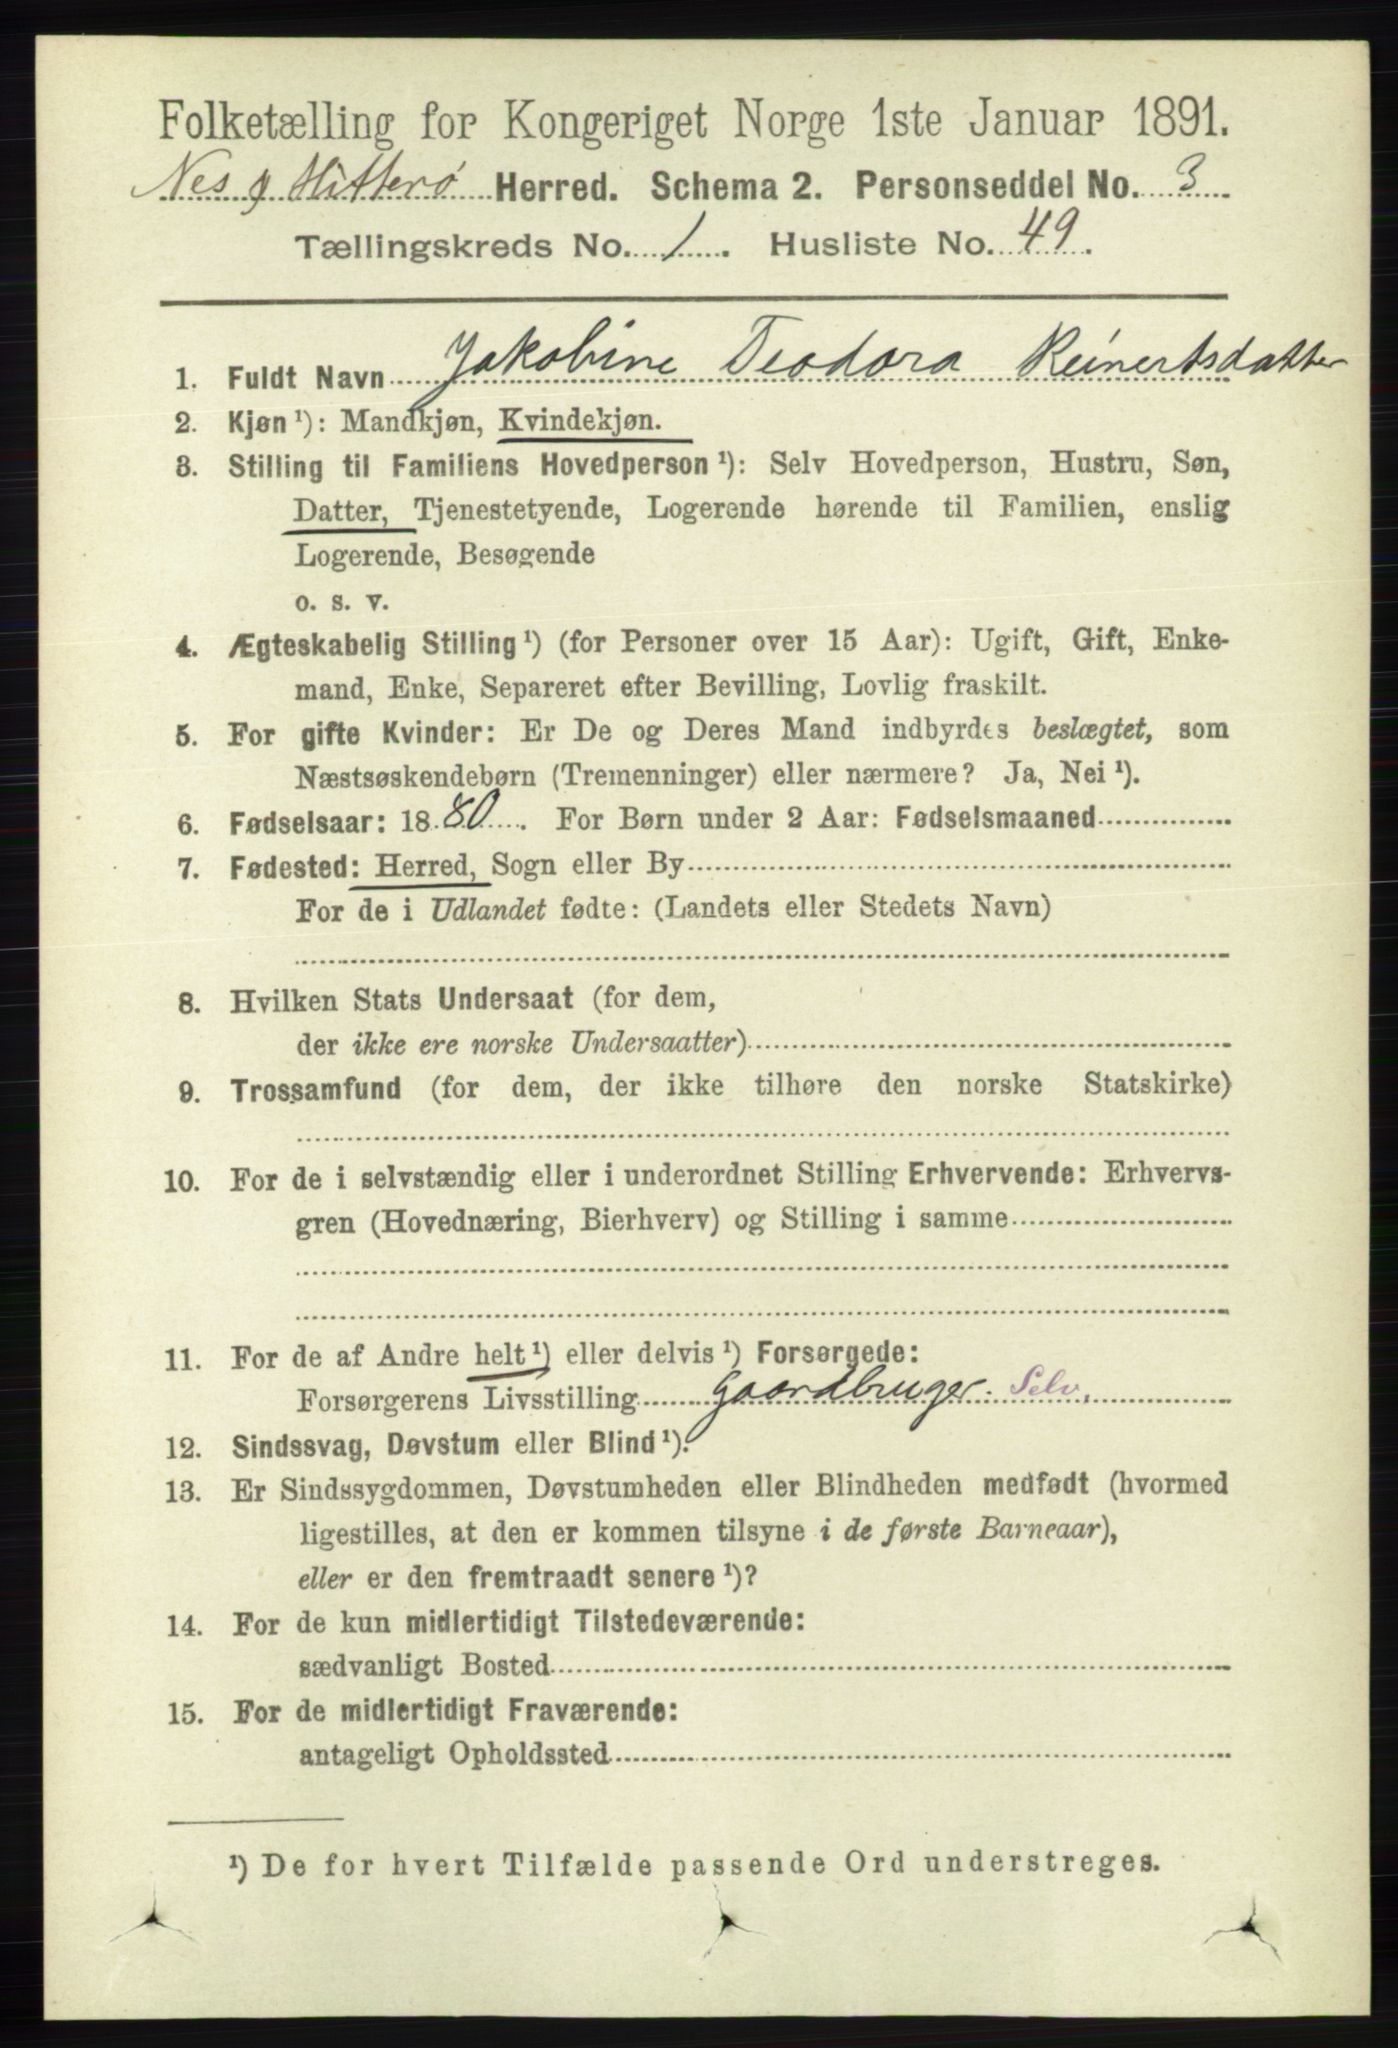 Folketælling for Kongeriget Norge 1ste Januar 1891.
Nes og Hitterø Herred. Schema 2. Personseddel No. 3
Tællingskreds No. 1. Husliste No. 49.
1. Fuldt Navn Jakobine Teodora Reinertsdatter
2. Kjøn ¹): Mandkjøn, Kvindekjøn.
3. Stilling til Familiens Hovedperson ¹): Selv Hovedperson, Hustru, Søn,
Datter, Tjenestetyende, Logerende hørende til Familien, enslig
Logerende, Besøgende
o. s. v.
4. Ægteskabelig Stilling ¹) (for Personer over 15 Aar): Ugift, Gift, Enke-
mand, Enke, Separeret efter Bevilling, Lovlig fraskilt.
5. For gifte Kvinder: Er De og Deres Mand indbyrdes beslægtet, som
Næstsøskendebørn (Tremenninger) eller nærmere? Ja, Nei ¹).
6. Fødselsaar: 1880. For Børn under 2 Aar: Fødselsmaaned
7. Fødested: Herred, Sogn eller By
For de i Udlandet fødte: (Landets eller Stedets Navn)
8. Hvilken Stats Undersaat (for dem,
der ikke ere norske Undersaatter)
9. Trossamfund (for dem, der ikke tilhøre den norske Statskirke)
10. For de i selvstændig eller i underordnet Stilling Erhvervende: Erhvervs-
gren (Hovednæring, Bierhverv) og Stilling i samme
11. For de af Andre helt ¹) eller delvis ¹) Forsørgede:
Forsørgerens Livsstilling Gaardbruger. Selv.
12. Sindssvag, Døvstum eller Blind ¹).
13. Er Sindssygdommen, Døvstumheden eller Blindheden medfødt (hvormed
ligestilles, at den er kommen tilsyne i de første Barneaar),
eller er den fremtraadt senere ¹)?
14. For de kun midlertidigt Tilstedeværende:
sædvanligt Bosted
15. For de midlertidigt Fraværende:
antageligt Opholdssted
¹) De for hvert Tilfælde passende Ord understreges.